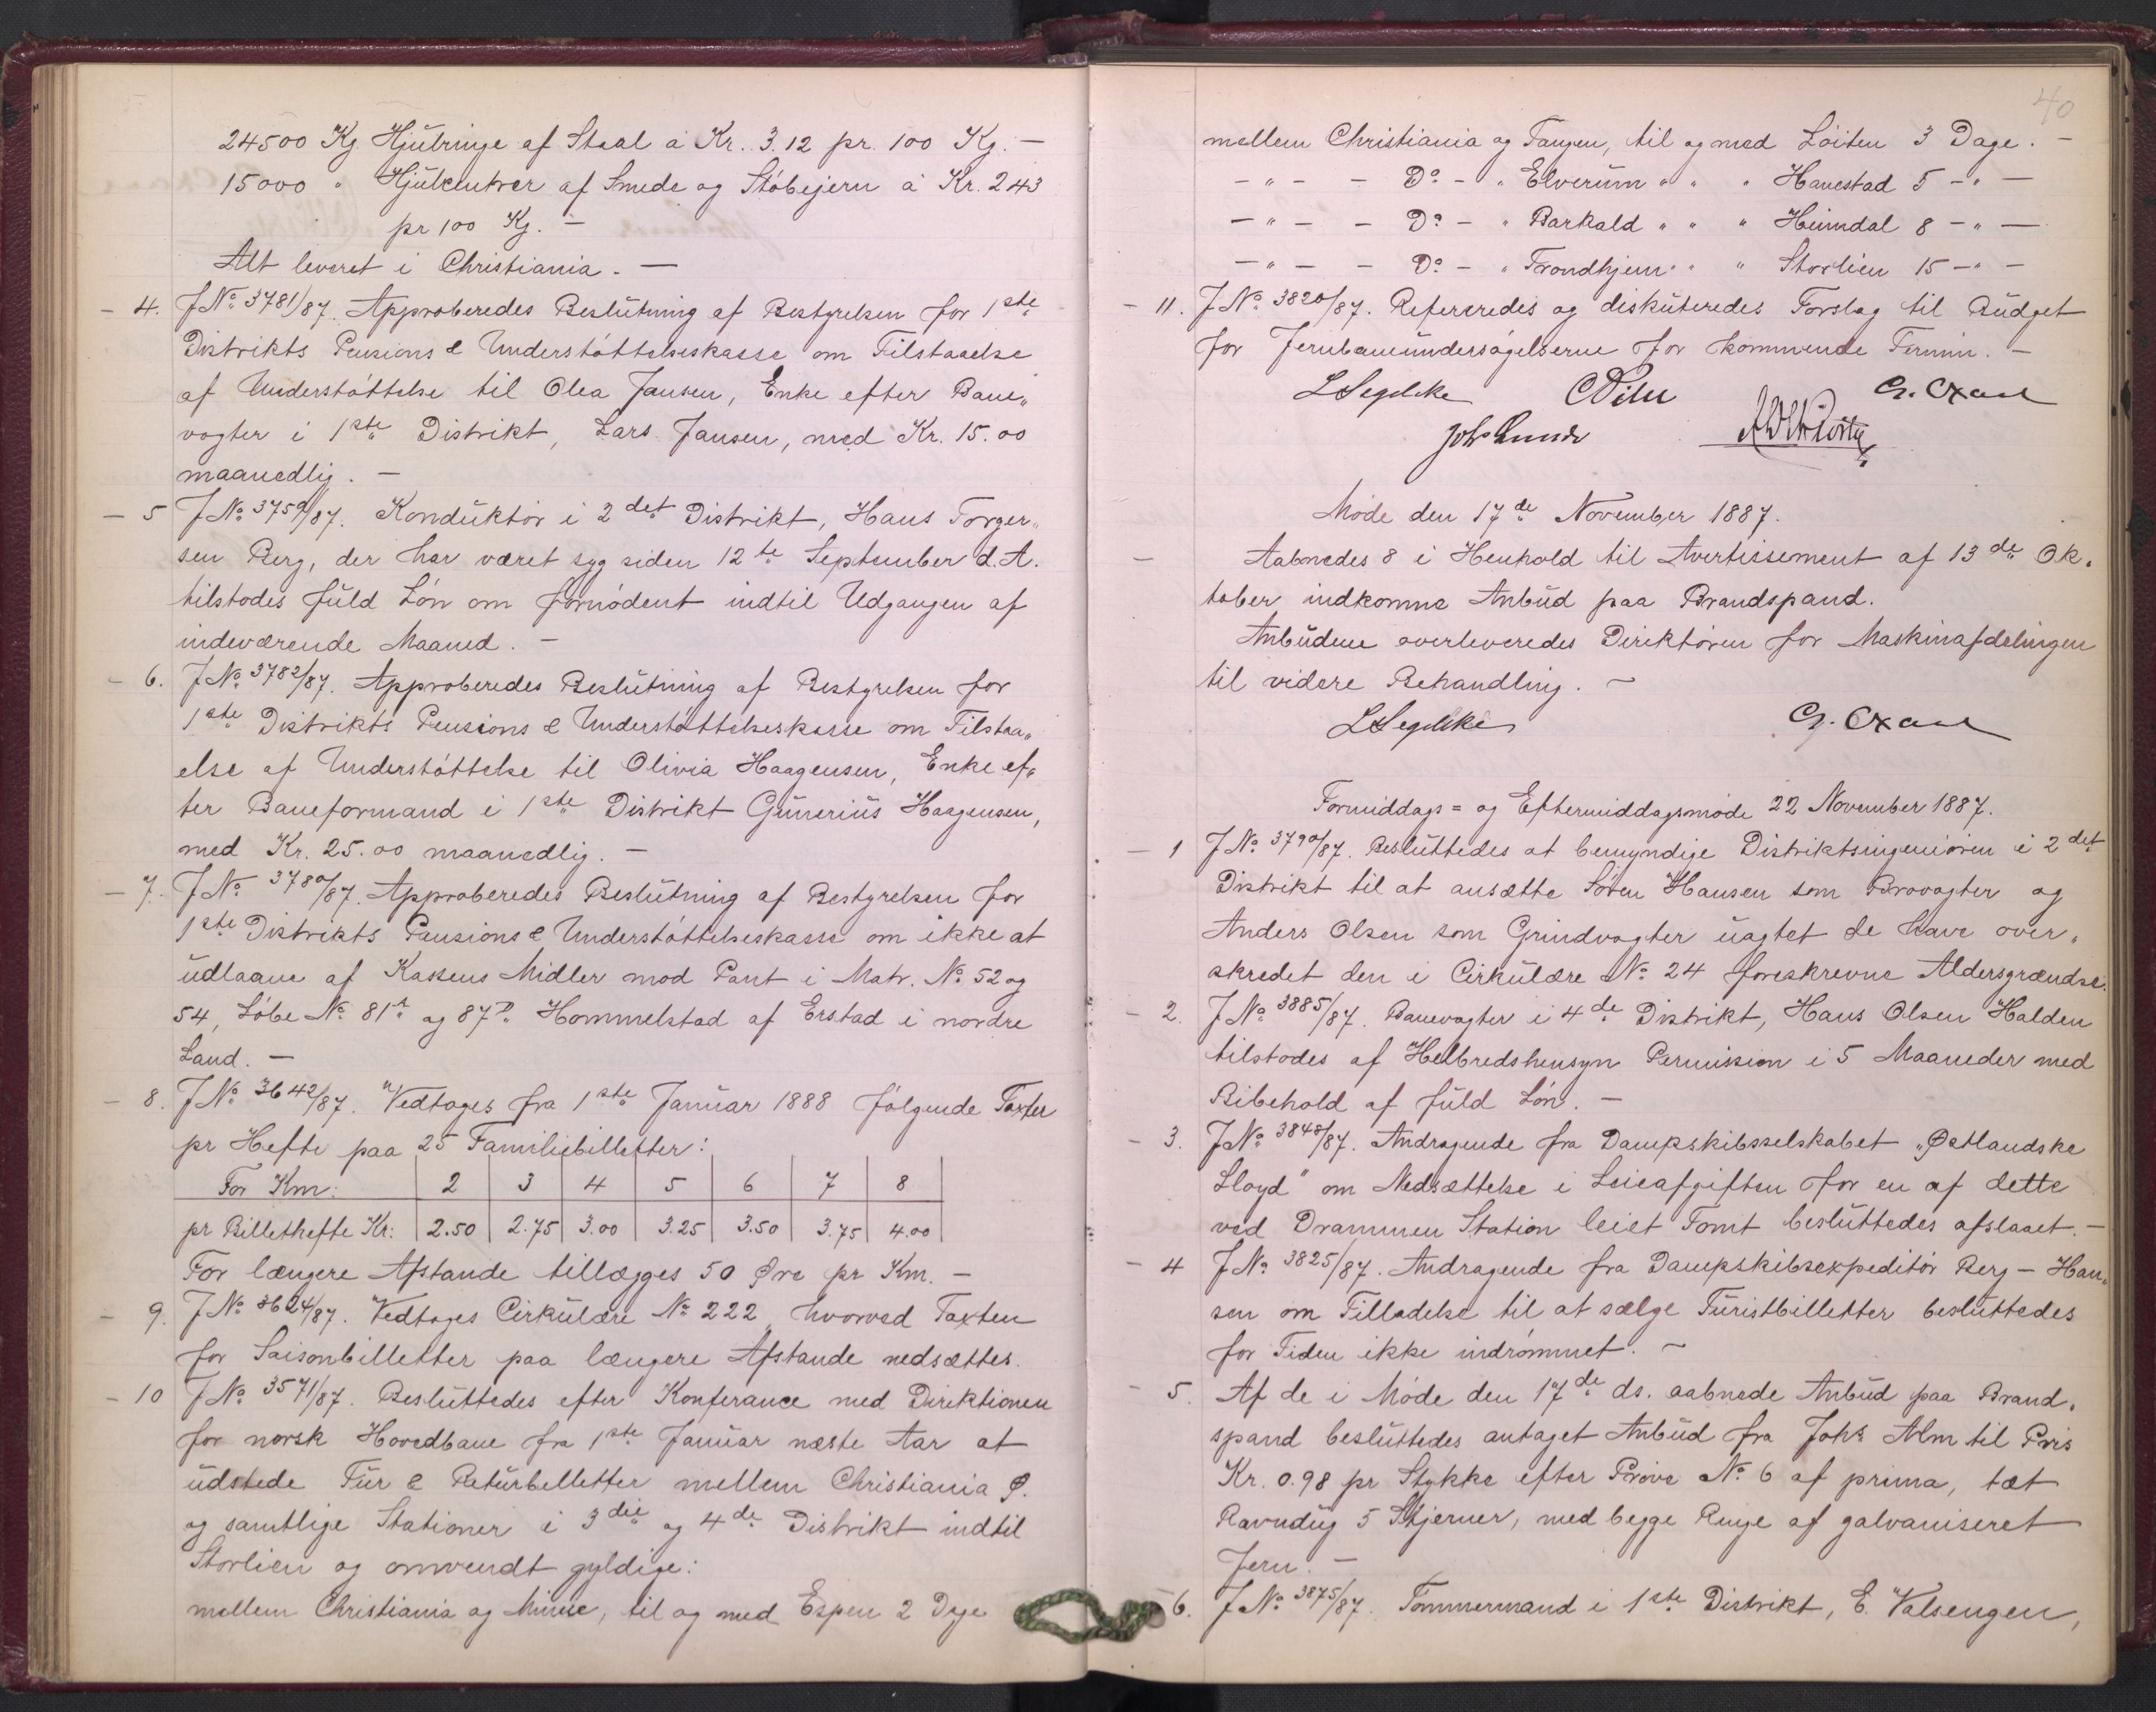 24500 Kg Hjulringe af Staal à Kr. 3.12 pr. 100 Kg. —
15000 " Hjulcentrer af Smede og Støbejern à Kr. 243
pr 100 Kg. —
Alt leveret i Christiania. —
- 4. J№ 3781/87. Approberedes Beslutning af Bestyrelsen for 1ste
Distrikts Pensions & Understøttelseskasse om Tilstaaelse
af Understøttelse til Olea Jansen, Enke efter Bane„
vogter i 1ste Distrikt, Lars Jansen, med Kr. 15.00
maanedlig. —
- 5 J№ 3759/87. Konduktør i 2det Distrikt, Hans Torger„
sen Berg, der har været syg siden 12te September d.A.
tilstodes fuld Løn om fornødent indtil Udgangen af
indeværende Maaned. —
- 6. J№ 3782/87. Approberedes Beslutning af Bestyrelsen for
1ste Distrikts Pensions & Understøttelseskasse om Tilstaa„
else af Understøttelse til Olivia Haagensen, Enke ef„
ter Baneformand i 1ste Distrikt Gunerius Haagensen,
med Kr. 25.00 maanedlig. —
- 7. J№ 3780/87. Approberedes Beslutning af Bestyrelsen for
1ste Distrikts Pensions & Understøttelseskasse om ikke at
udlaane af Kassens Midler mod Pant i Matr. № 52 og
54, Løbe № 81a og 87b Hommelstad af Erstad i nordre
Land. —
- 8. J№ 3642/87. Vedtoges fra 1ste Januar 1888 følgende Taxter
pr Hefte paa 25 Familiebilletter:
For Km: 2 3 4 5 6 7 8
pr Billethefte Kr: 2.50 2.75 3.00 3.25 3.50 3.75 4.00
For længere Afstande tillægges 50 Øre pr Km. —
- 9. J№ 3624/87. Vedtoges Cirkulære № 222, hvorved Taxten
for Saisonbilletter paa længere Afstande nedsættes.
- 10 J№ 3571/87. Besluttedes efter Konferance med Direktionen
for norsk Hovedbane fra 1ste Januar næste Aar at
udstede Tur & Returbelletter mellem Christiania Ø.
og samtlige Stationer i 3die og 4de Distrikt indtil
Storlien og omvendt gyldige:
mellem Christiania og Minne, til og med Espen 2 Dage
40
mellem Christiania og Tangen, til og med Løiten 3 Dage. —
- " - - Do - " Elverum " " " Hanestad 5 - " -
- " - - Do - " Barkald " " " Heimdal 8 - " -
- " - - Do - " Trondhjem " " " Storlien 15 - " -
- 11. J№ 3820/87. Refereredes og diskuteredes Forslag til Budget
for Jernbaneundersøgelserne for kommende Termin. —
LSegelcke CPihl G. Exan
Johs Lunde
Møde den 17de November 1887.
- Aabnedes 8 i Henhold til Avertissement af 13de Ok„
tober indkomne Anbud paa Brandspand.
Anbudene overleveredes Direktøren for Maskinafdelingen
til videre Behandling. —
LSegelcke G. Exan
Formiddags= og Eftermiddagsmøde 22 November 1887.
- 1 J№ 3790/87. Besluttedes at bemyndige Distriktsingeniøren i 2det
Distrikt til at ansætte Søren Hansen som Brovogter og
Anders Olsen som Grindvogter uagtet de have over„
skredet den i Cirkulære № 24 foreskrevne Aldersgrændse.
- 2. J№ 3885/87. Banevogter i 4de Distrikt, Hans Olsen Halden
tilstodes af Helbredshensyn Permission i 5 Maaneder med
Bibehold af fuld Løn. —
- 3. J№ 3848/87. Andragende fra Dampskibsselskabet „Østlandske
Lloyd" om Nedsættelse i Leieafgiften for en af dette
ved Drammen Station leiet Tomt besluttedes afslaaet. —
- 4 J№ 3825/87. Andragende fra Dampskibsexpeditør Berg - Han„
sen om Tilladelse til at sælge Turistbilletter besluttedes
for Tiden ikke indrømmet. —
- 5. Af de i Møde den 17de ds. aabnede Anbud paa Brand„
spand besluttedes antaget Anbud fra Johs Alm til Pris
Kr. 0.98 pr Stykke efter Prøve № 6 af prima, tæt
Ravndug 5 Stjerner, med begge Ringe af galvaniseret
Jern. —
- 6. J№ 3875/87. Tømmermand i 1ste Distrikt, E. Valsengen,